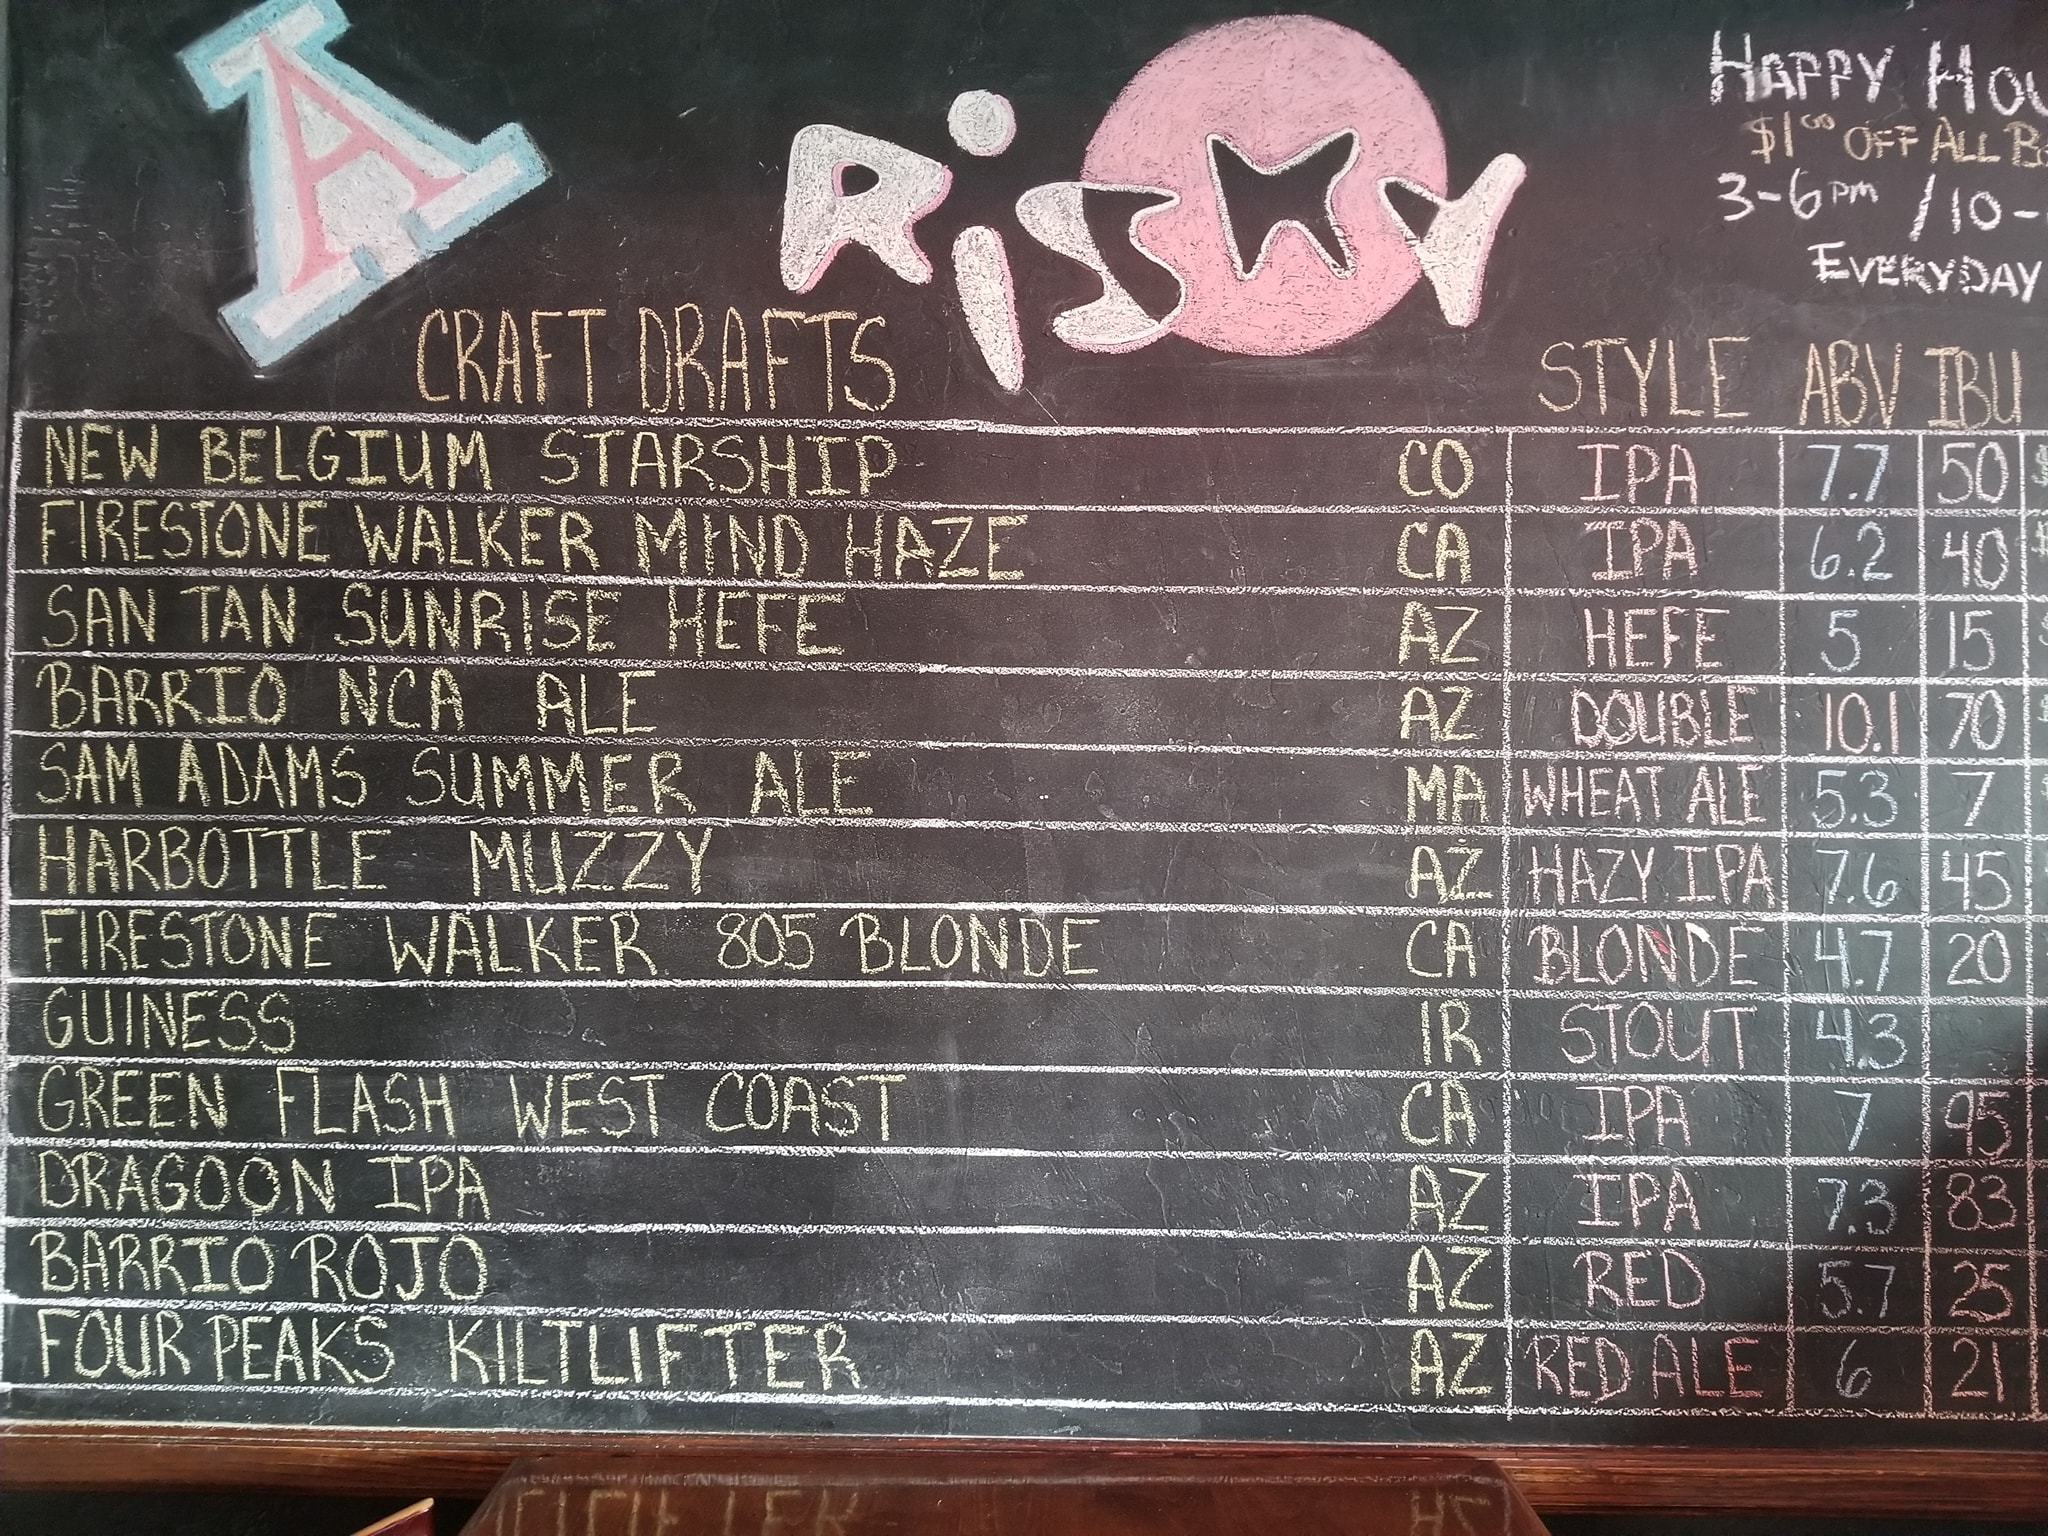 A
RiSKY
HAPPY HOU
$1.00 OFF ALL
3-6PM / 10-
EVERYDAY
CRAFT DRAFTS STYLE ABV IBU
NEW BELGIUM STARSHIP CO IPA 7.7 50
FIRESTONE WALKER MIND HAZE CA IPA 6.2 40
SAN TAN SUNRISE HEFE AZ HEFE 5 15
BARRIO NCA ALE AZ DOUBLE 10.1 70
SAM ADAMS SUMMER ALE MA WHEAT ALE 5.3 7
HARBOTTLE MUZZY AZ HAZY IPA 7.6 45
FIRESTONE WALKER 805 BLONDE CA BLONDE 4.7 20
GUINESS IR STOUT 4.3
GREEN FLASH WEST COAST CA IPA 7 95
DRAGOON IPA AZ IPA 7.3 83
BARRIO ROJO AZ RED 5.7 25
FOUR PEAKS KILTLIFTER AZ RED ALE 6 21